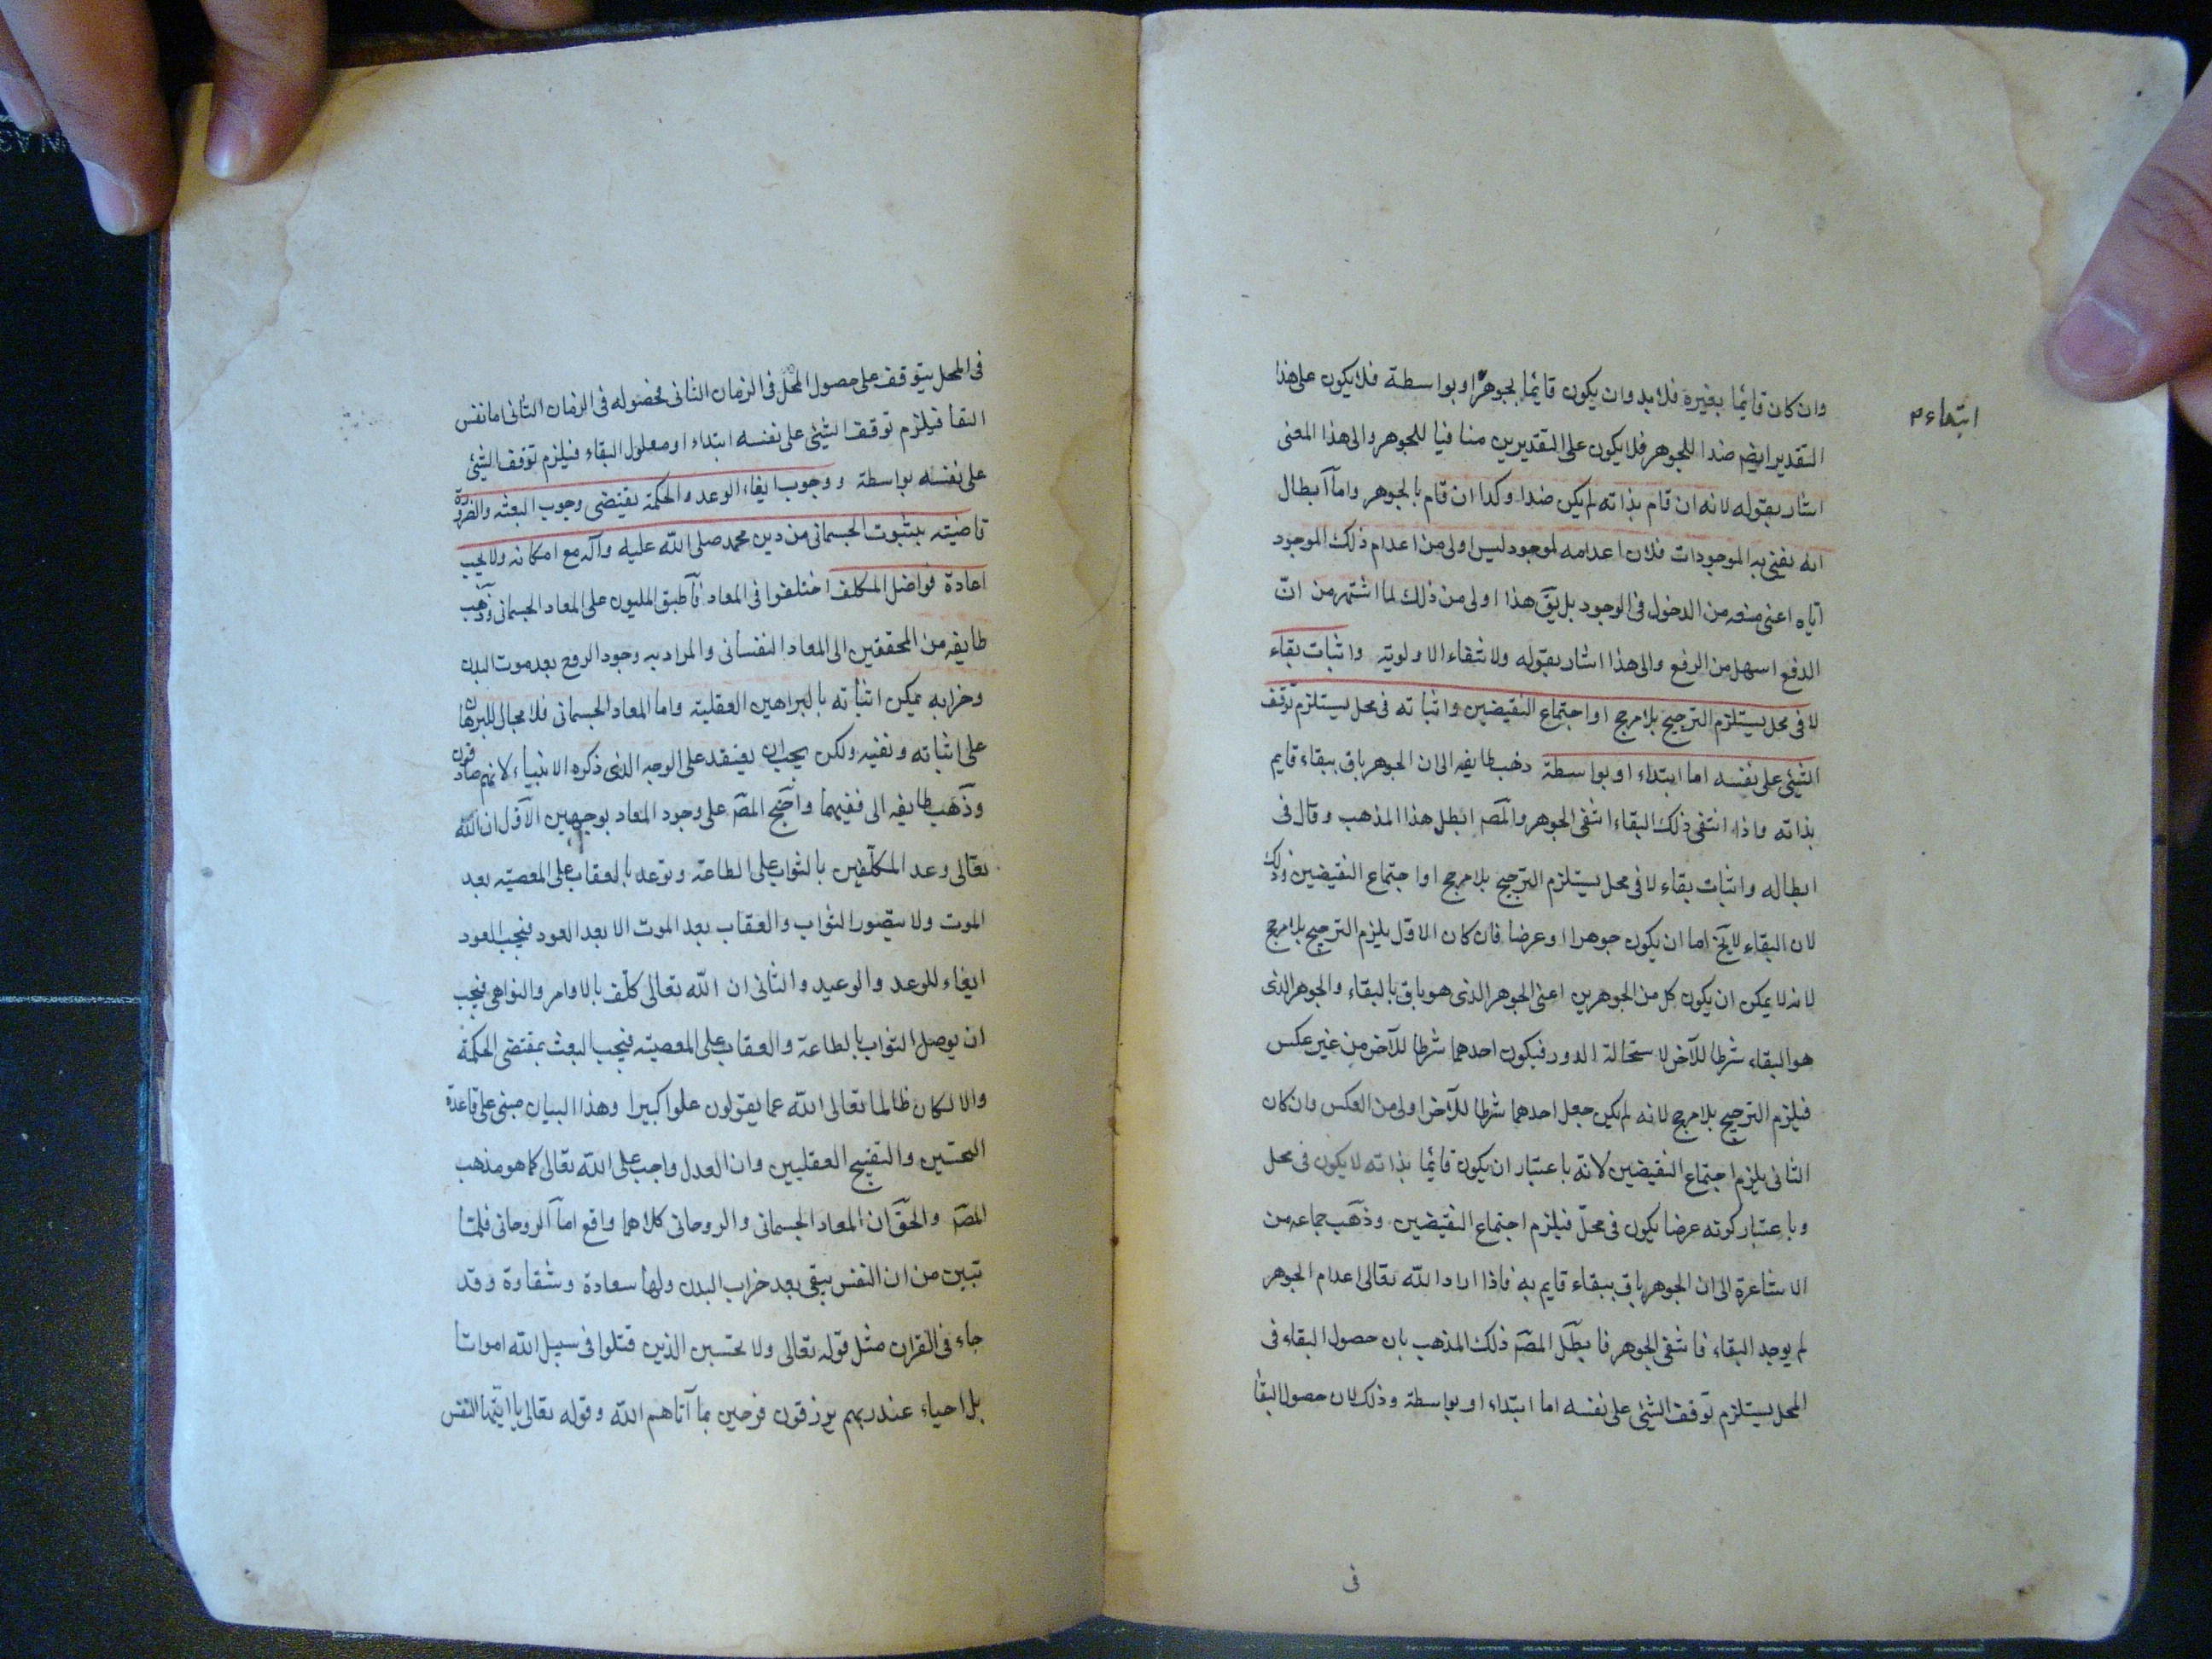 وان كان قائما بغيره فلابد وان يكون قايما بجوهر او بواسطة فلا يكون على هذا
ابتداء م
التقدير ايضم ضدا للجوهر فلا يكون على التقديرين منافيا للجوهر والى هذا المعنى
اشار بقوله لانه ان قام بذاته لم يكن ضدا وكذا ان قام بالجوهر واما ابطال
انه يفنى به الموجودات فلان اعدامه لموجود ليس اولى من اعدام ذلك الموجود
اياه اعنى منعه من الدخول فى الوجود بل يق هذا اولى من ذلك لما اشتهر من انّ
الدفع اسهل من الرفع والى هذا اشار بقوله ولانتفاء الاولوية واثبات بقاء
لا فى محل يستلزم الترجيح بلا مرجح او اجتماع النقيضين واثباته فى محل يستلزم توقف
الشئ على نفسه اما ابتداء او بواسطة ذهب طايفه الى ان الجوهر باق ببقاء قايم
بذاته واذا انتفى ذلك البقاء انتفى الجوهر والمصم ابطل هذا المذهب وقال فى
ابطاله واثبات بقاء لا فى محل يستلزم الترجيح بلا مرجح او اجتماع النقيضين وذلك
لان البقاء لا يخ اما ان يكون جوهرا او عرضا فان كان الاول يلزم الترجيح بلا مرجح
لانه لا يمكن ان يكون كل من الجوهرين اعنى الجوهر الذى هو باق بالبقاء والجوهر الذى
هو البقاء شرطا للآخر لاستحالة الدور فيكون احدهما شرطا للآخر من غير عكس
فيلزم الترجيح بلا مرجح لانه لم يكن جعل احدهما شرطا للآخر اولى من العكس وان كان
الثانى يلزم اجتماع النقيضين لانه باعتبار ان يكون قائما بذاته لا يكون فى محل
وباعتبار كونه عرضا يكون فى محلّ فيلزم اجتماع النقيضين وذهب جماعه من
الاشاعرة الى ان الجوهر باق ببقاء قايم به فاذا اراد الله تعالى اعدام الجوهر
لم يوجد البقاء فانتفى الجوهر فابطل المصم ذلك المذهب بان حصول البقاء فى
المحل يستلزم توقف الشئ على نفسه اما ابتداء او بواسطة وذلك لان حصول البقا
فى
فى المحل يتوقف على حصول المحل فى الزمان الثانى فحصوله فى الزمان الثانى اما نفس
البقا فيلزم توقف الشئ على نفسه ابتداء او معلول البقاء فيلزم توقف الشئ
على نفسه بواسطة ووجوب ايفاء الوعد والحكمة يقتضى وجوب البعثه والضرورة
قاضيته بثبوت الجسمانى من دين محمد صلى الله عليه وآله مع امكانه ولا يجب
اعادة فواضل المكلف اختلفوا فى المعاد فاطبق المليون على المعاد الجسمانى وذهب
طايفه من المحققين الى المعاد النفسانى والمراد به وجود الروح بعد موت البدن
وخرابه يمكن اثباته بالبراهين العقليه واما المعاد الجسمانى فلا مجال للبرهان
على اثباته ونفيه ولكن يجب ان يعتقد على الوجه الذى ذكره الانبياء لانهم صادقون
وذهب طايفه الى نفيهما واحتج المصم على وجود المعاد بوجهين الاول ان الله
تعالى وعد المكلّفين بالثواب على الطاعة وتوعد بالعقاب على المعصيته بعد
الموت ولا يتصور الثواب والعقاب بعد الموت الا بعد العود فيجب العود
ايفاء للوعد والوعيد والثانى ان الله تعالى كلّف بالاوامر والنواهى فيجب
ان يوصل الثواب بالطاعة والعقاب على المعصيته فيجب البعث بمقتضى الحكمة
والا لكان ظالما تعالى الله عما يقولون علوا كبيرا وهذا البيان مبنى على قاعدة
التحسين والتقبيح العقليين وان العدل واجب على الله تعالى كما هو مذهب
المصم والحقّ ان المعاد الجسمانى والروحانى كلاهما واقع اما الروحانى فلما
تبين من ان النفس يبقى بعد خراب البدن ولها سعادة وشقاوة وقد
جاء فى القران مثل قوله تعالى ولا تحسبن الذين قتلوا فى سبيل الله امواتا
بل احياء عند ربهم يرزقون فرحين بما آتاهم الله وقوله تعالى يا ايتها النفس